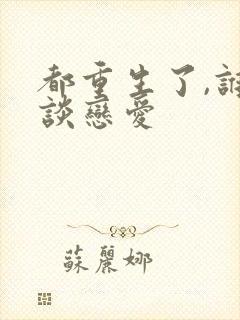 都重生了,誰
談戀愛
蘇麗娜